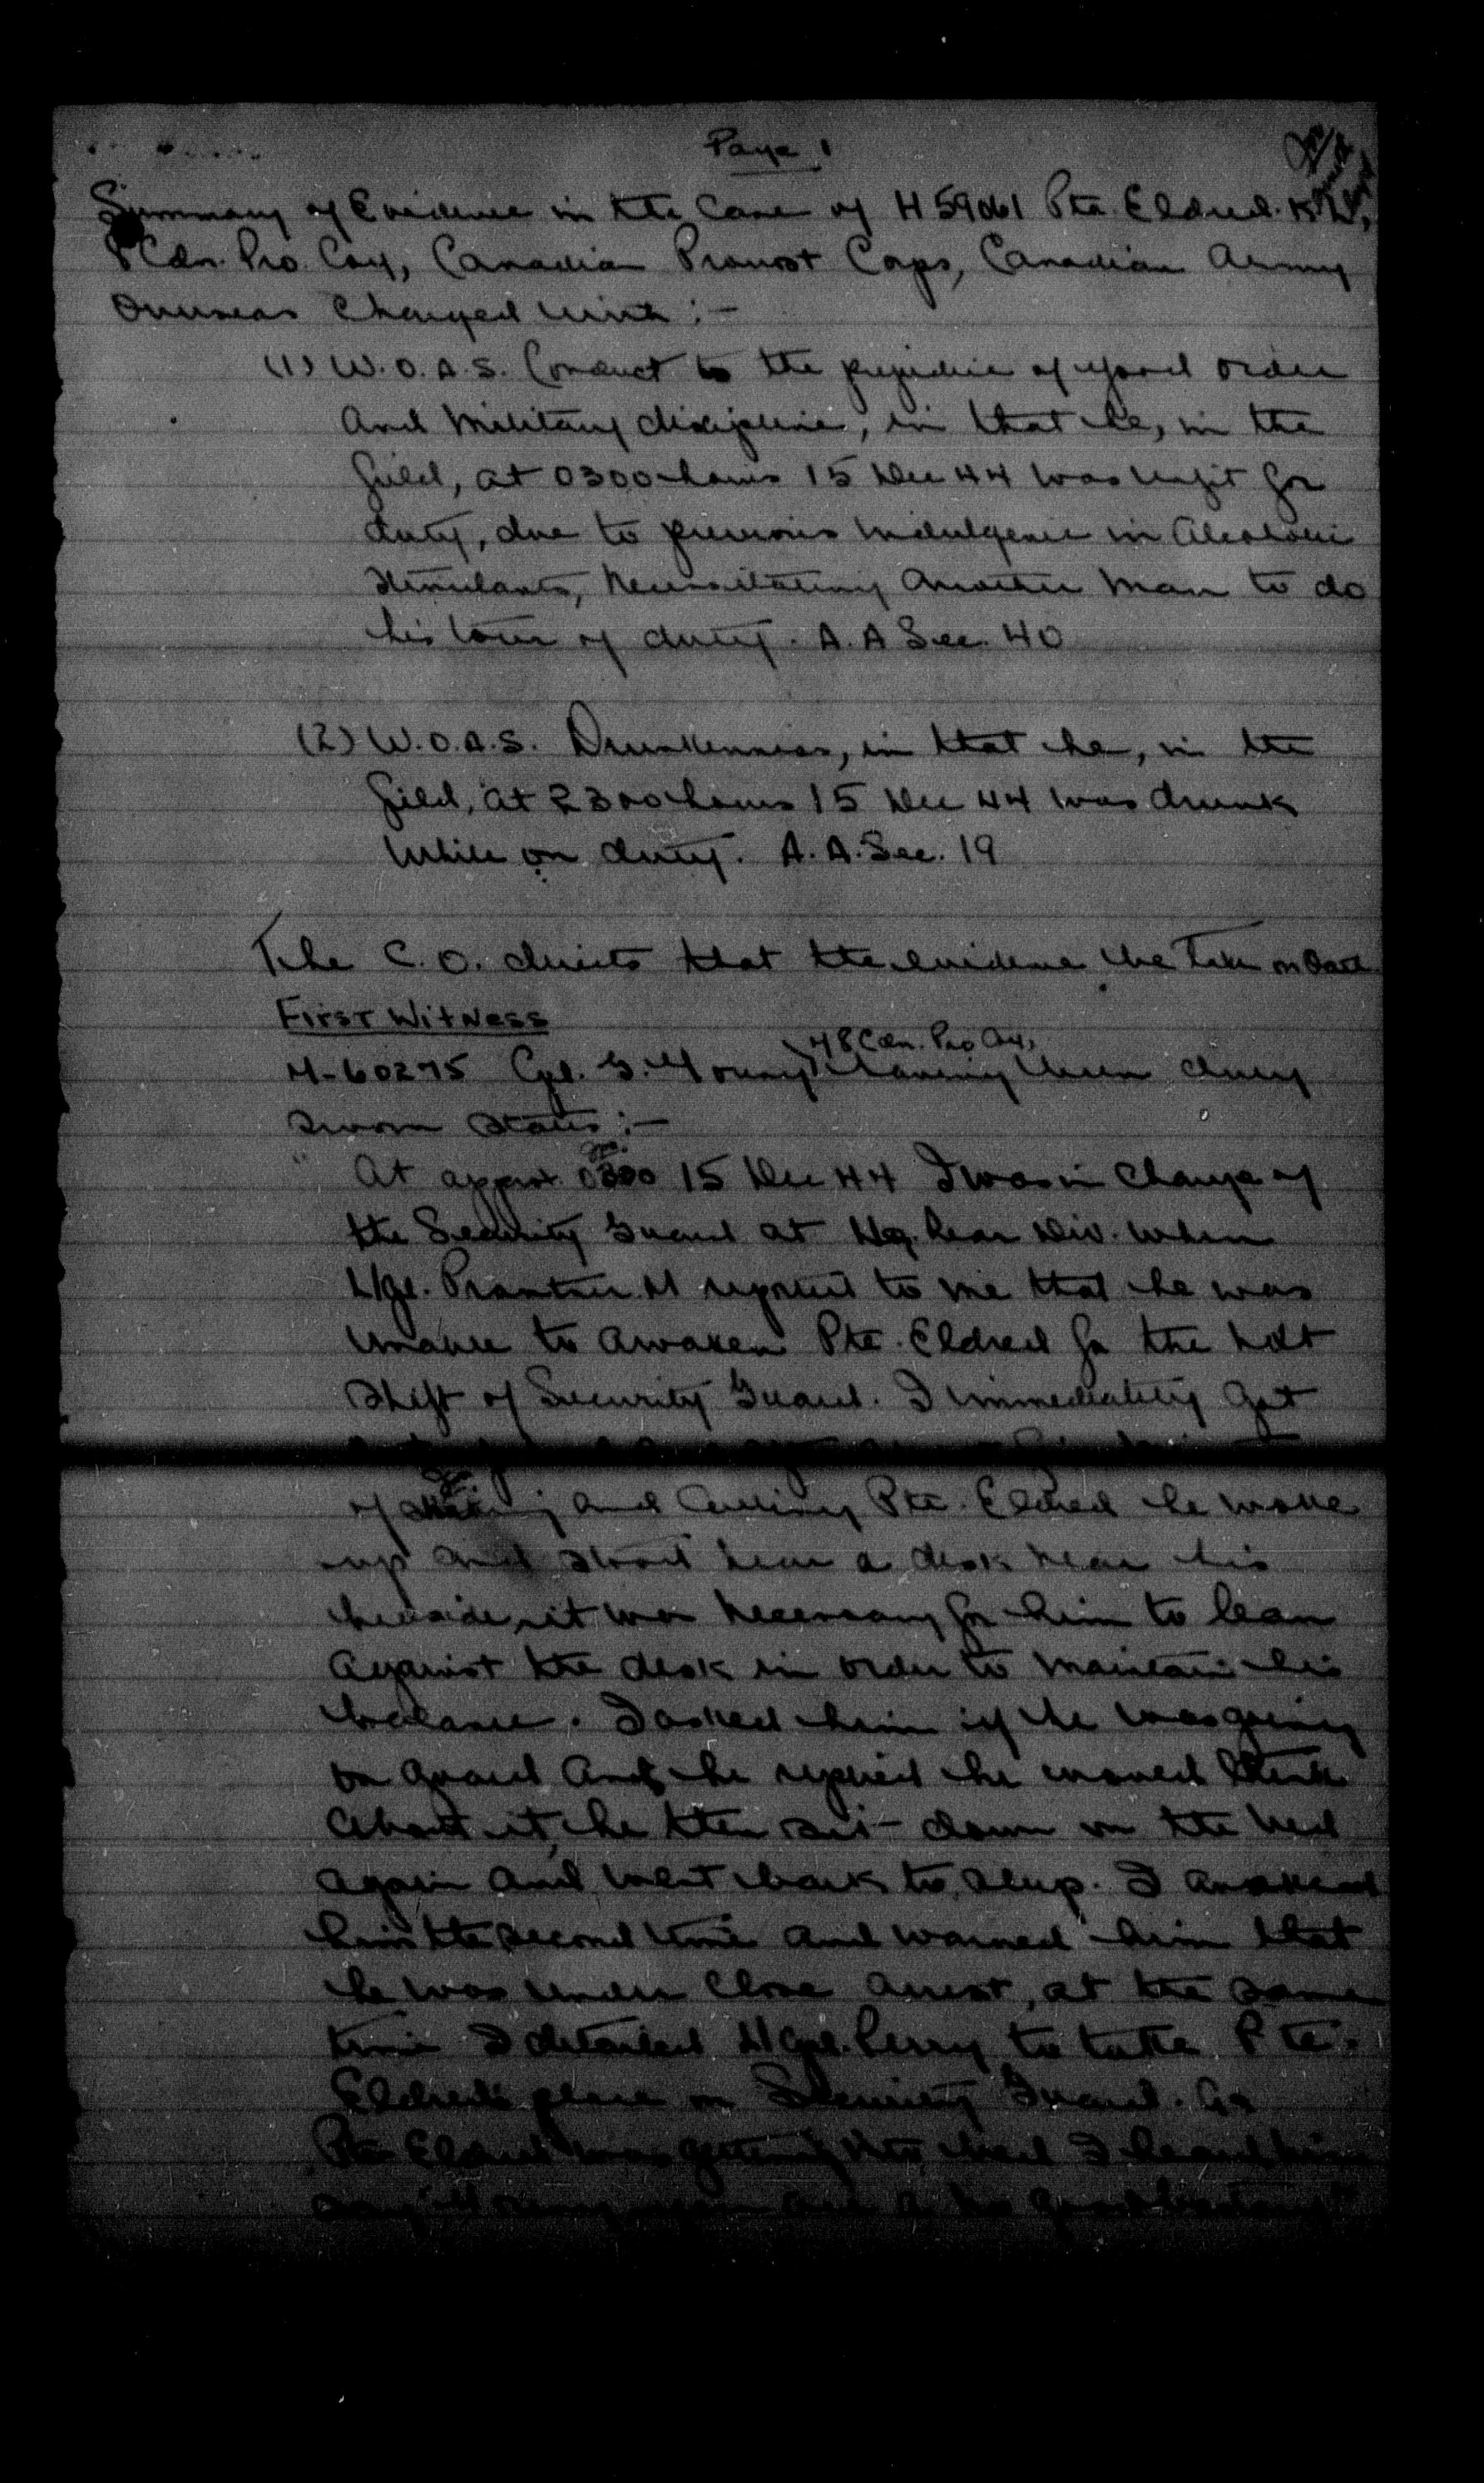 Page 1
Summary of Evidence in the Case of H 59061 Pte. Eldred. K
8 Cdn. Pro. Coy, Canadian Provost Corps, Canadian Army
Overseas Charged with :-
(1) W.O.A.S. Conduct to the prejudice of good order
and Military discipline, in that he, in the
field, at 0300 hours 15 Dec 44 was unfit for
duty, due to previous indulgence in Alcoholic
Stimulants, necessitating another man to do
his tour of duty. A.A Sec. 40
(2) W.O.A.S. Drunkenness, in that he, in the
field, at 2300 hours 15 Dec 44 was drunk
while on duty. A.A. Sec. 19
The C.O. directs that the evidence be taken on Oath.
First Witness
8 Cdn. Pro Coy,
H-60275 Cpl. G. Young having been duly
sworn states :-
At approx. 0300 15 Dec 44 I was in charge of
the Security Guard at Hq. Rear Div. when
L/Cpl. M reported to me that he was
unable to awaken Pte. Eldred for the next
shift of Security Guard. I immediately got
of and calling Pte. Eldred he woke
up and stood near a desk near his
bedside, it was necessary for him to lean
against the desk in order to maintain his
balance. I asked him if he was going
on guard and he replied he would think
about it, he then sat down on the bed
again and went back to sleep. I awakened
him the second time and warned him that
he was under close arrest, at the same
time I detailed L/Cpl. Perry to take Pte.
Eldred's place on Security Guard. As
Pte Eldred was getting into bed I heard him
say "Young you are a no good bastard"